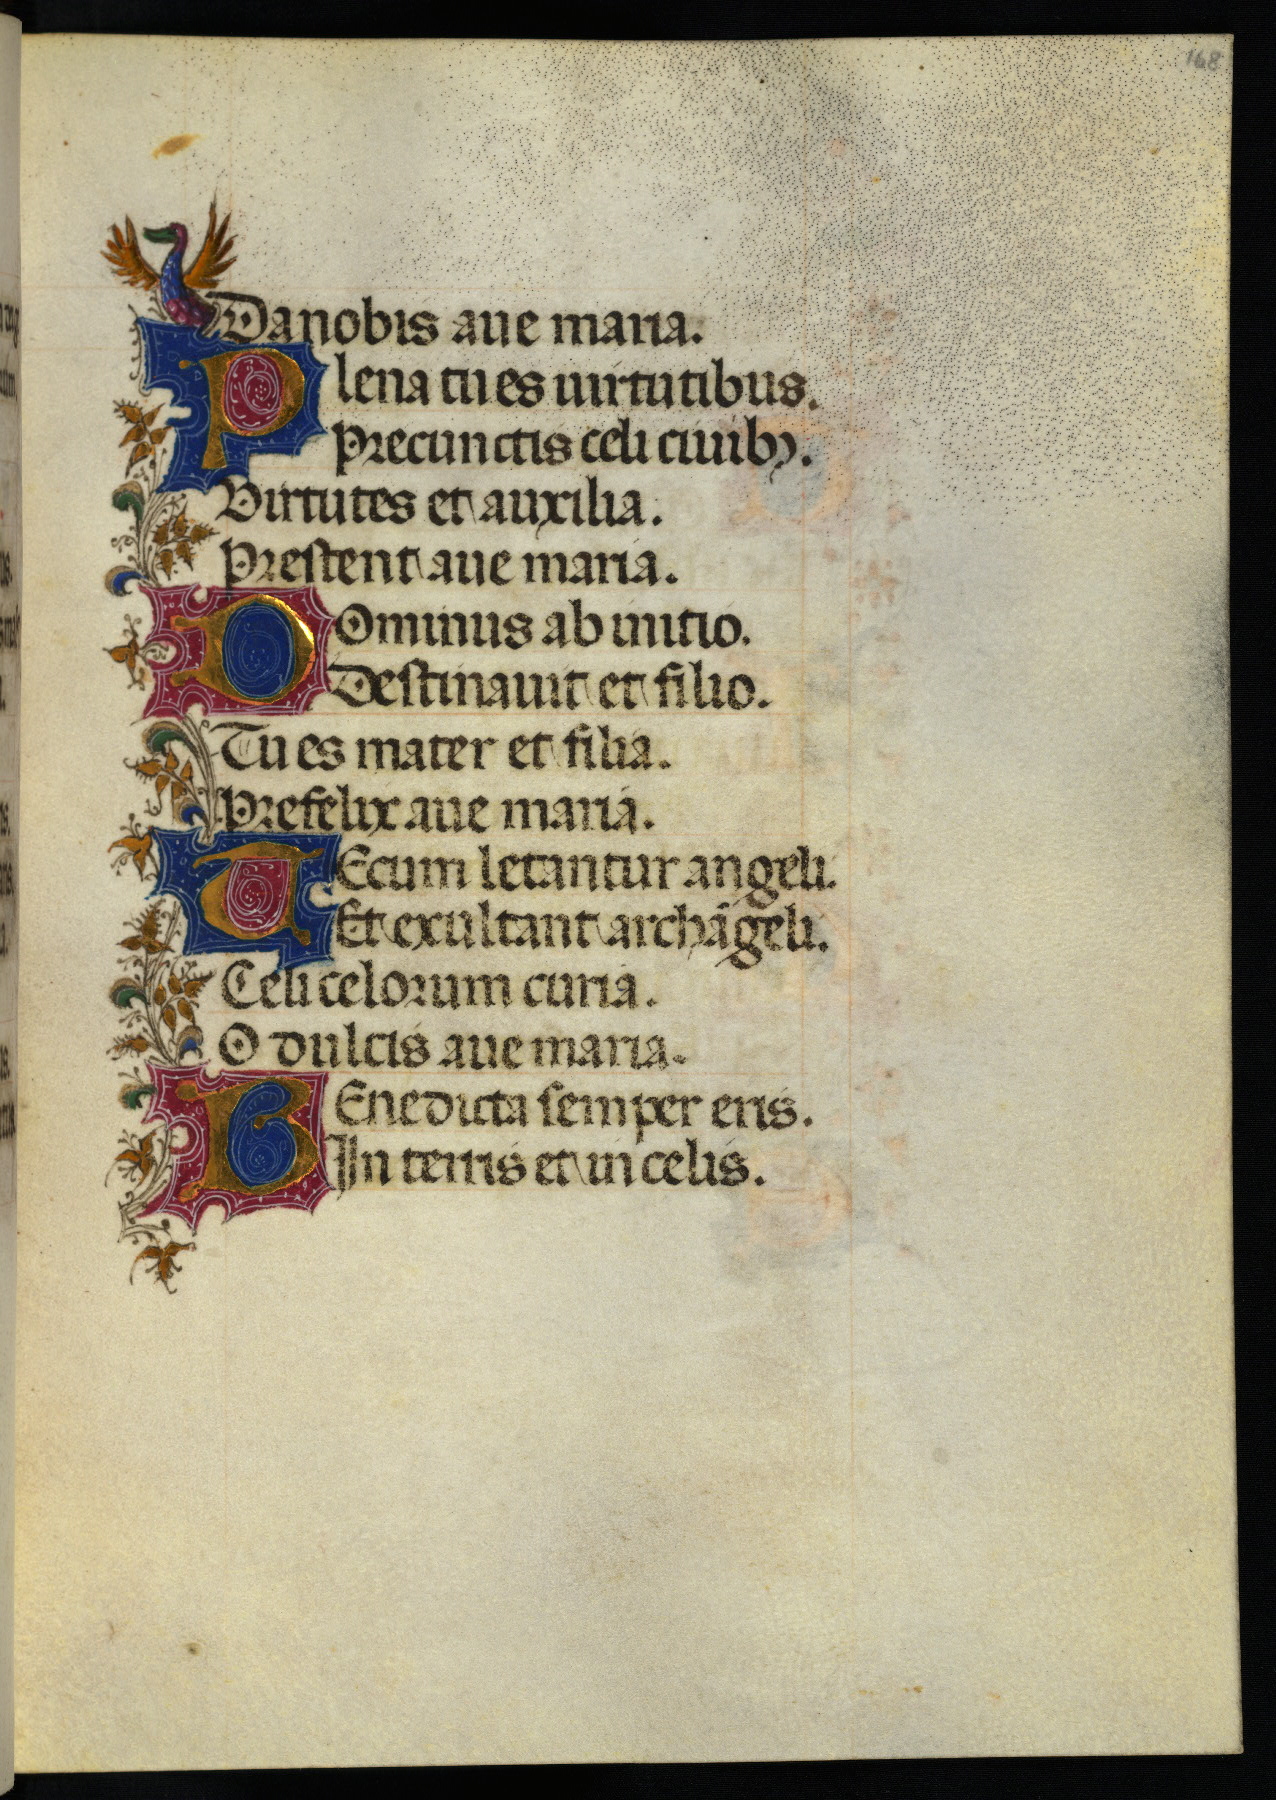 168
Da nobis aue maria.
Plena tu es uirtutibus.
Pre cunctis celi ciuibꝫ.
Virtutes et auxilia.
Prestent aue maria.
DOminus ab initio.
Destinauit et filio.
Tu es mater et filia.
Prefelix aue maria.
TEcum letantur angeli.
Et exultant archāgeli.
Celi celorum curia.
O dulcis aue maria.
BEnedicta semper eris.
In terris et in celis.